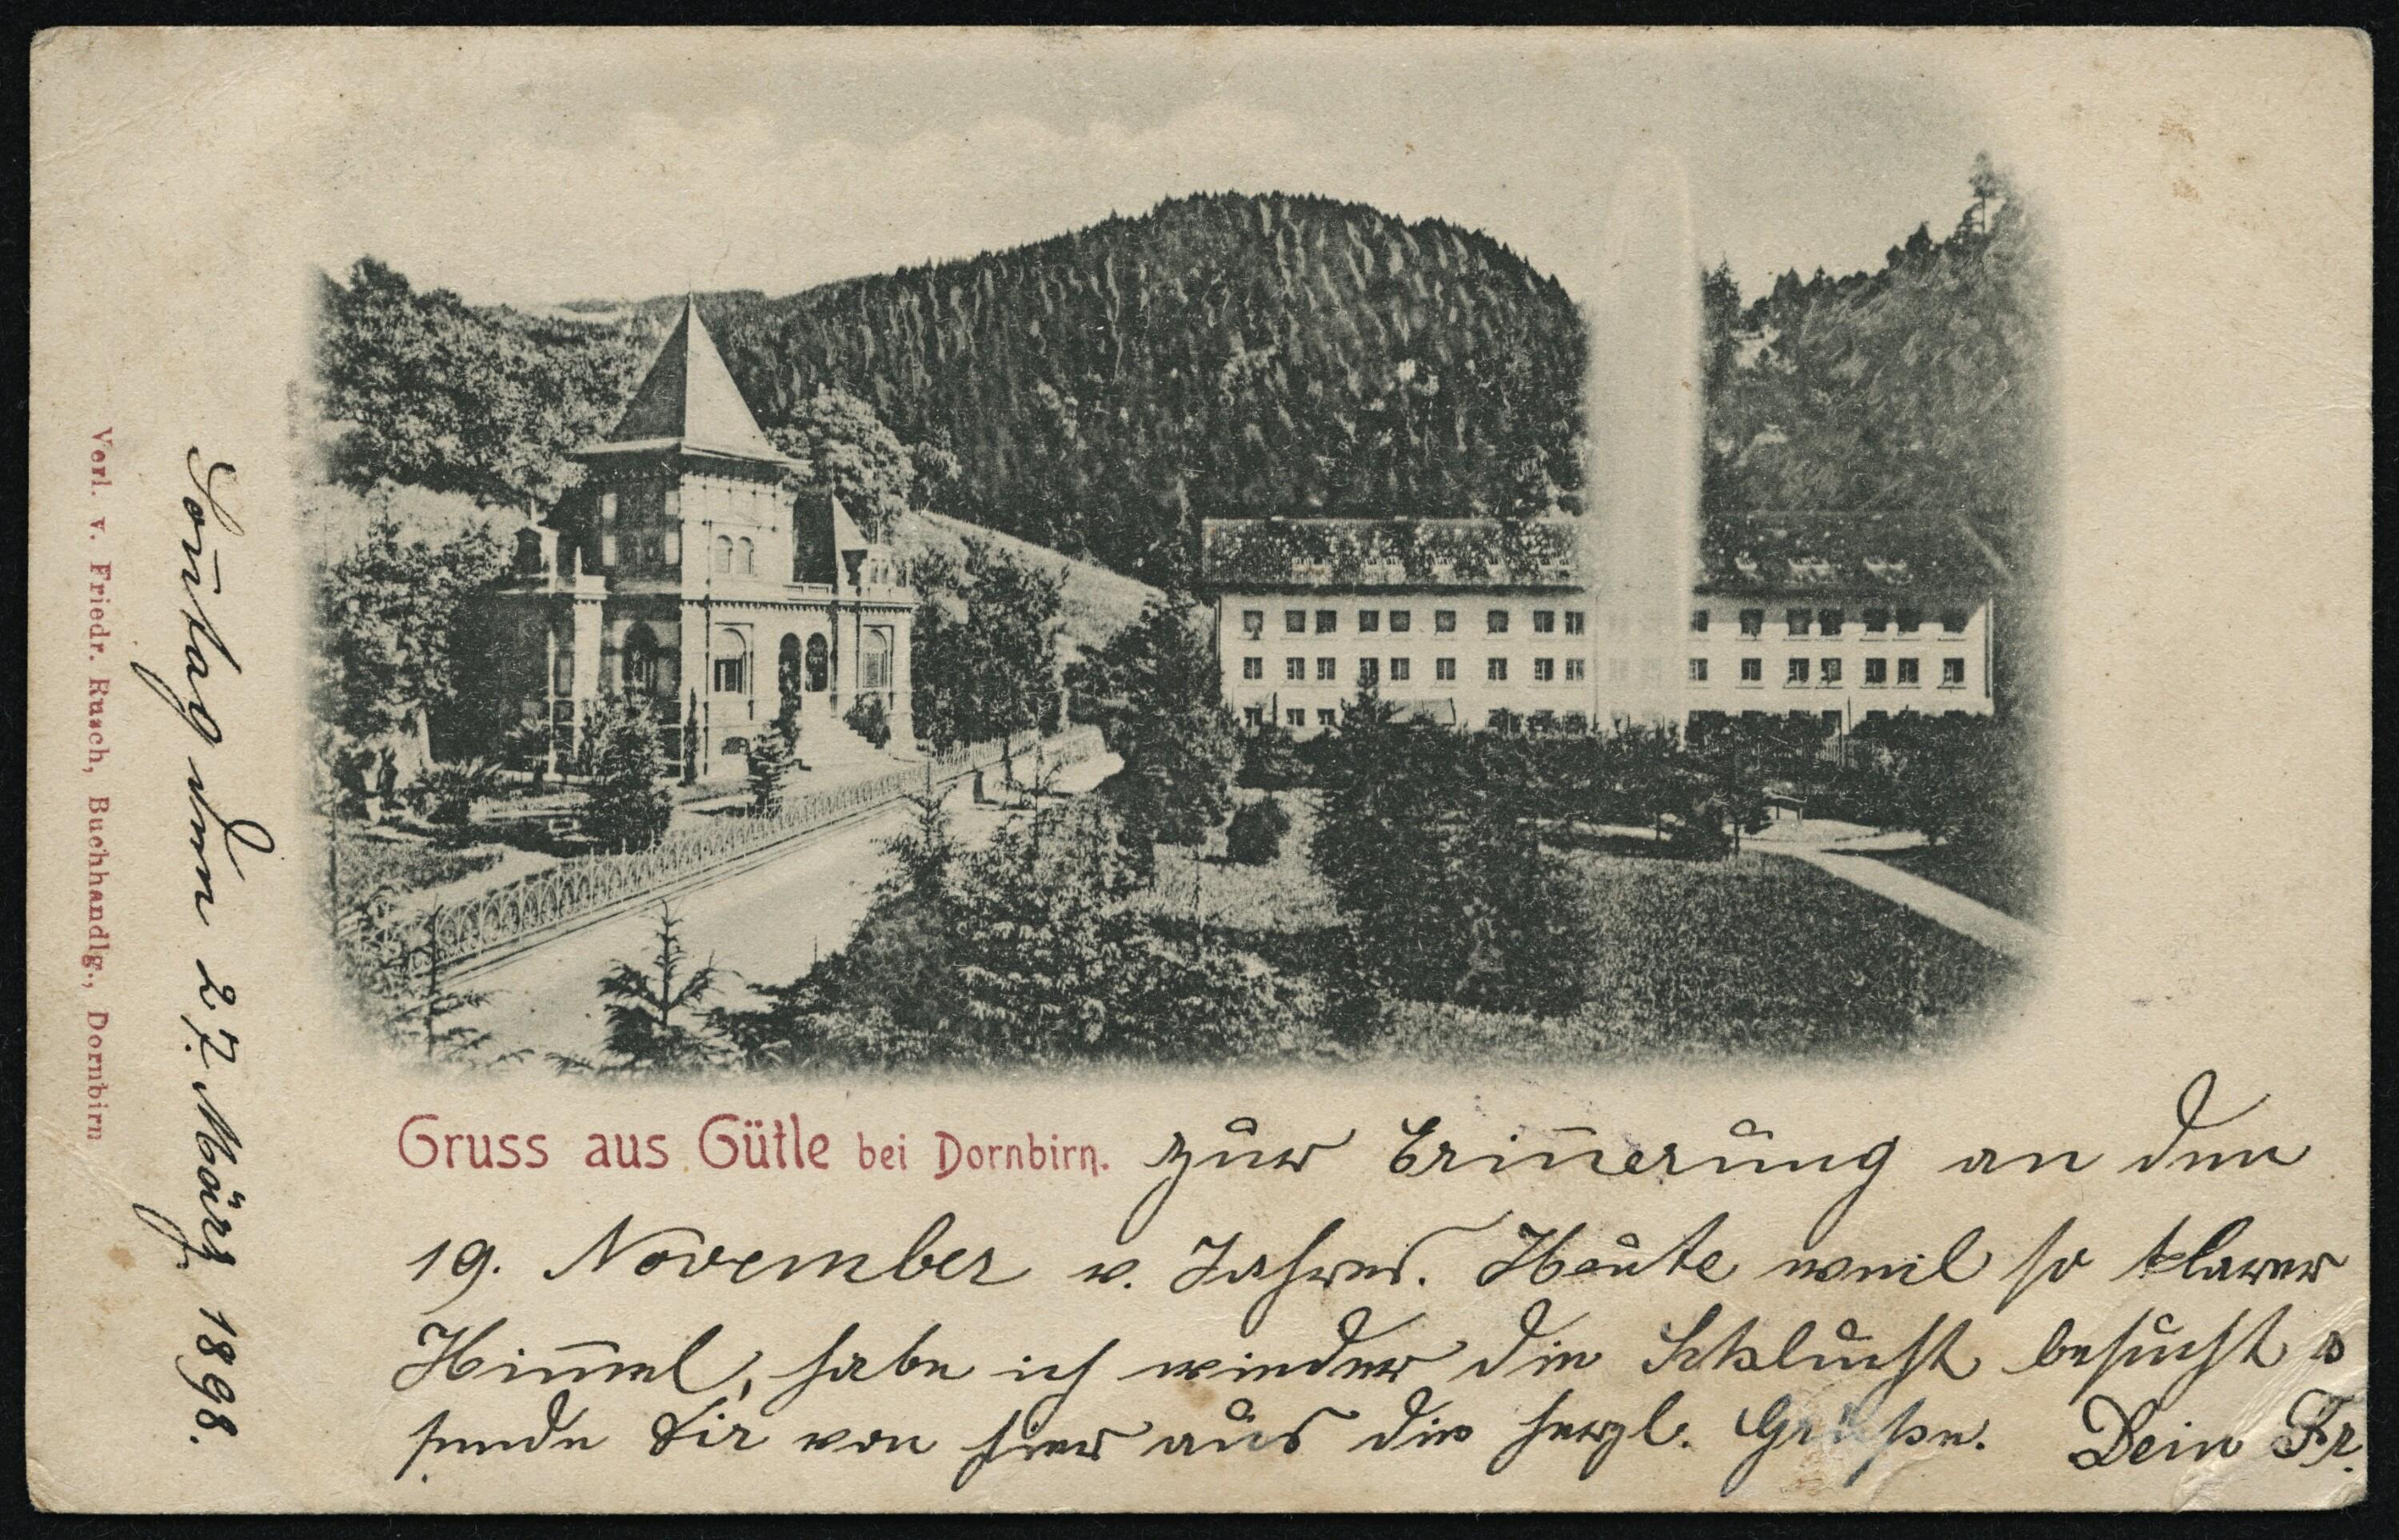 Verl. v. Friedr. Rusch, Buchhandlg., Dornbirn
Soñtag den 27. März 1898.
Gruss aus Gütle bei Dornbirn. zur Eriñerung an den
19. November v. Jahres. Heute weil so klarer
Him̄el, habe ich wieder die Schlucht besucht &
sende Dir von hier aus die herzl. Grüße. Dein Fr.